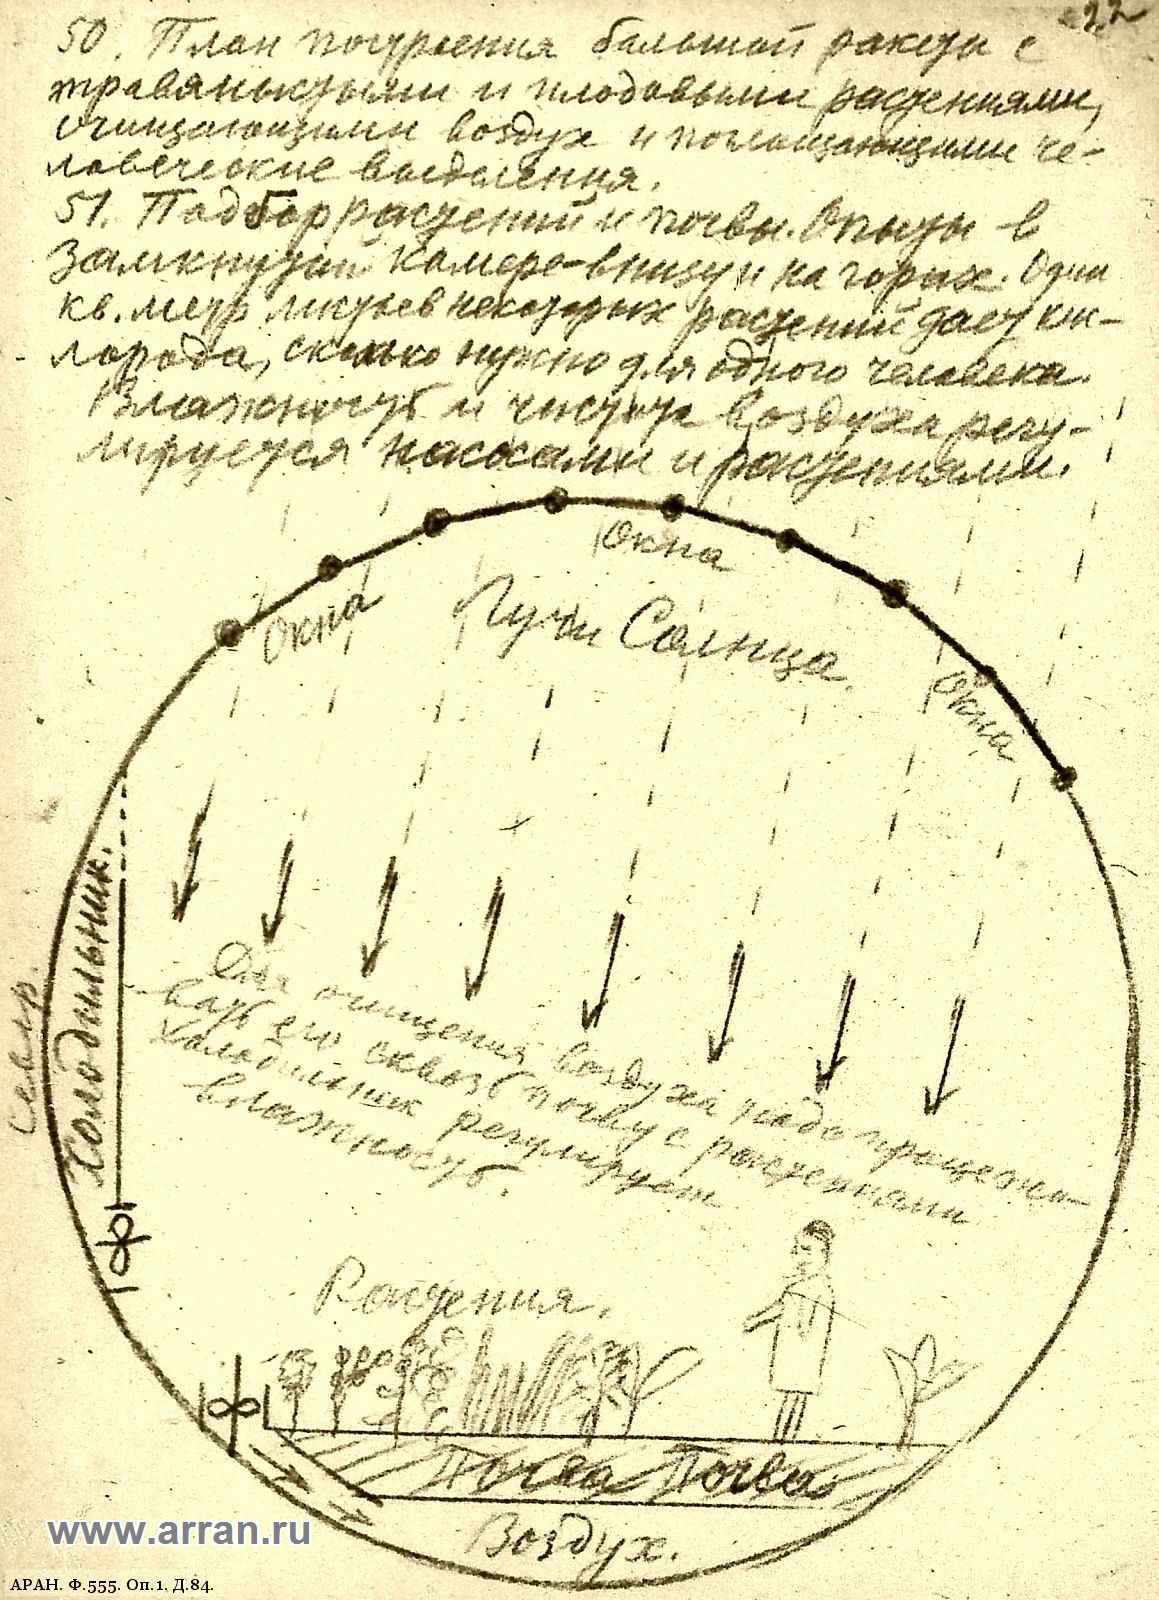 22
50. План построения большой ракеты с
травянистыми и плодовыми растениями,
очищающими воздух и поглощающими че-
ловеческие выделения.
51. Подбор растений и почвы. Опыты в
замкнутой камере-внизу и на горах. Один
кв. метр листьев некоторых растений дает кис-
лорода, сколько нужно для одного человека.
Влажность и чистота воздуха регу-
лируется насосами и растениями.
Окна
Окна
Лучи Солнца.
Окна
Холодильник.
Север.
Для очищения воздуха надо процежи-
вать его сквозь почву с растениями
Холодильник регулирует
влажность.
Растения.
Почва Почва
Воздух.
www.arran.ru
АРАН. Ф.555. Оп.1, Д.84.